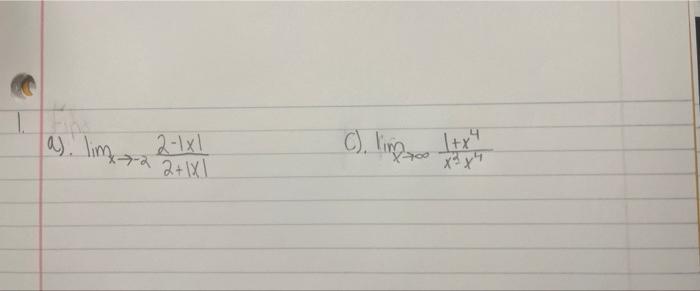 1.
a). lim x→-2 2-|x| / 2+|x|
c). lim x→∞ 1+x⁴ / x² x⁴